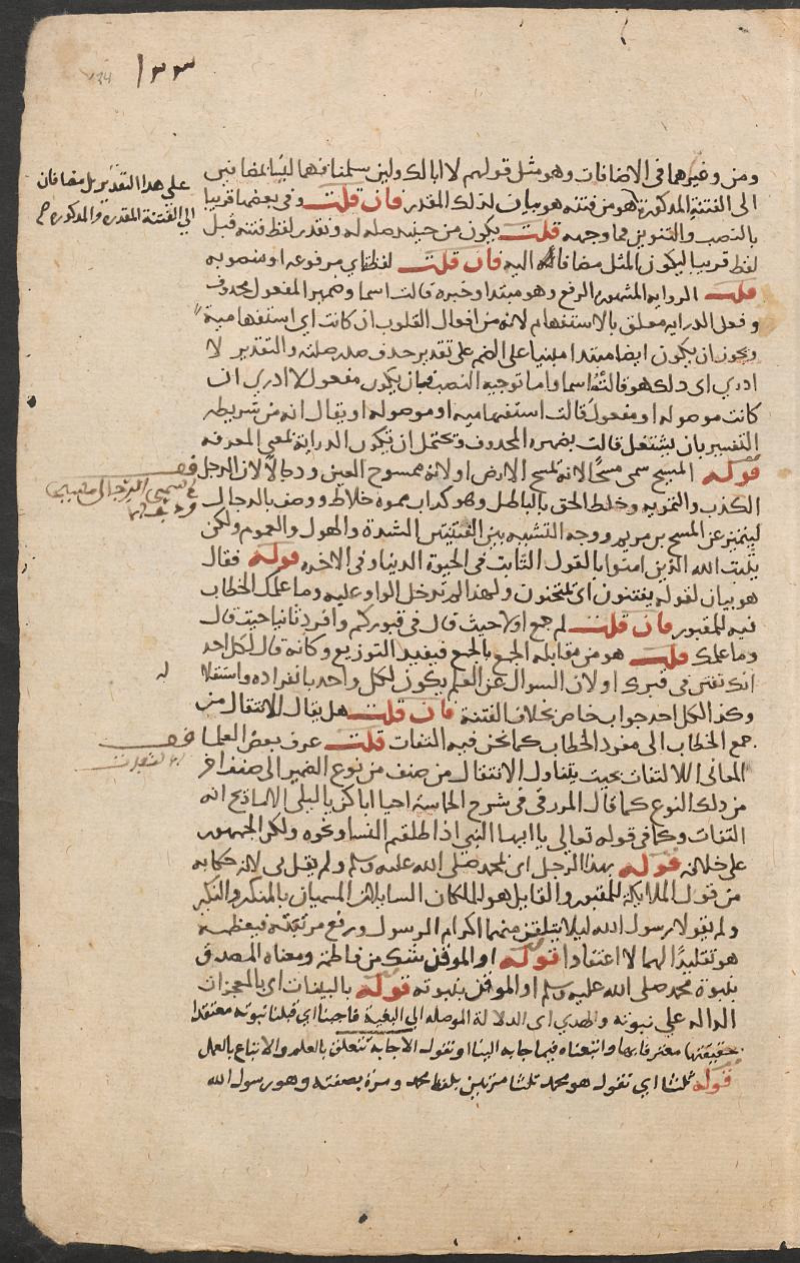 ١٣٣
134
ومن وغيرهما في الاضافات وهو مثل قولهم لا ابا لك ولين سلمنا فهما ليسا بمضافين
على هدا التقدير بل مضافان
الى الفتنة المقدره والمدكوره صح
الى الفتنة المذكورة هو من فتنه هو بيان لذلك المقدر فان قلت وفي بعضها قريبا
بالنصب والتنوين فما وجهه قلت يكون من حينيد صله له ونقدر لفظ فتنه قبل
لفظ قريبا ليكون المثل مضافا اليه فان قلت لفظ اي مرفوعه او منصوبه
قلت الروايه المشهوره الرفع وهو مبتدا وخبره قالت اسما وضمير المفعول محدوف
وفعل الدرايه معلق بالاستفهام لانه من افعال القلوب ان كانت اي استفهامية
ويجوز ان يكون ايضا مبتدا مبنيا على الضم على تقدير حدف صدر صلته والتقدير لا
ادري اي دلك هو قالته اسما واما توجيه النصب فبان يكون مفعول لا ادري ان
كانت موصوله او مفعول قالت استفهاميه او موصوله او يقال انه من شريطه
التفسير بان يشتغل قالت بضميره المحدوف ويحتمل ان تكون الدراية بمعنى المعرفه
قوله المسيح سمى مسيحا لانه يمسح الارض او لانه ممسوح العين ودجالا لان الدجل
قف
في تسمية الدجال مسيحا
الكذب والتمويه وخلط الحق بالباطل وهو كداب مموه خلاط ووصف بالدجال
ليتميز عن المسيح بن مريم ووجه التشبيه بين الفتنتين الشدة والهول والعموم ولكن
يثبت الله الذين امنوا بالقول الثابت في الحيوة الدنيا وفي الاخره قوله فقال
هو بيان لقوله يفتنون اي تمتحنون ولهدا لم تدخل الواو عليه وما علمك الخطاب
فيه للمقبور فان قلت لم جمع اولا حيث قال في قبوركم وافرد ثانيا حيث قال
وما علمك قلت هو من مقابله الجمع بالجمع فيفيد التوزيع وكانه قال لكل احد
انك تفتن في قبرك او لان السوال عن العلم يكون لكل واحد بانفراده واستقلا
له
وكذا لكل احد جواب خاص بخلاف الفتنة فان قلت هل يقال للانتقال من
جمع الخطاب الى مفرد الخطاب كما نحن فيه التفات قلت عرف بعض العلما
قف
المعاني الالتفات بحيث يتناول الانتقال من صنف من نوع الضمير الى صنف اخر
من دلك النوع كما قال المرزوقي في شرح الحماسة احيا اباكن يا ليلى الاماديح انه
التفات وكما في قوله تعالى يا ايها النبي اذا طلقتم النسا ونحوه ولكن الجمهور
على خلافه قوله بهذا الرجل اي لمحمد صلى الله عليه وسلم ولم يقل بي لانه حكايه
من قول الملايكة للمقبور والقايل هو الملكان السايلان المسميان بالمنكر والنكير
ولم يقولا رسول الله ليلا يتلقن منهما اكرام الرسول ورفع مرتبته فيعظمه
هو تقليدا لهما لا اعتقادا قوله او الموقن شك من فاطمة ومعناه المصدق
بنبوة محمد صلى الله عليه وسلم او الموقن بنبوته قوله بالبينات اي بالمعجزات
الداله على نبوته والهدي اي الدلالة الموصله الى البغية فاجبنا اي قبلنا نبوته معتقدا
حقيقتها معترفا بها واتبعناه فيما جا به الينا او تقول الاجابه تتعلق بالعلم والاتباع بالعمل
قوله ثلثا اي تقول هو محمد ثلثا مرتين بلفظ محمد ومرة بصفته وهو رسول الله